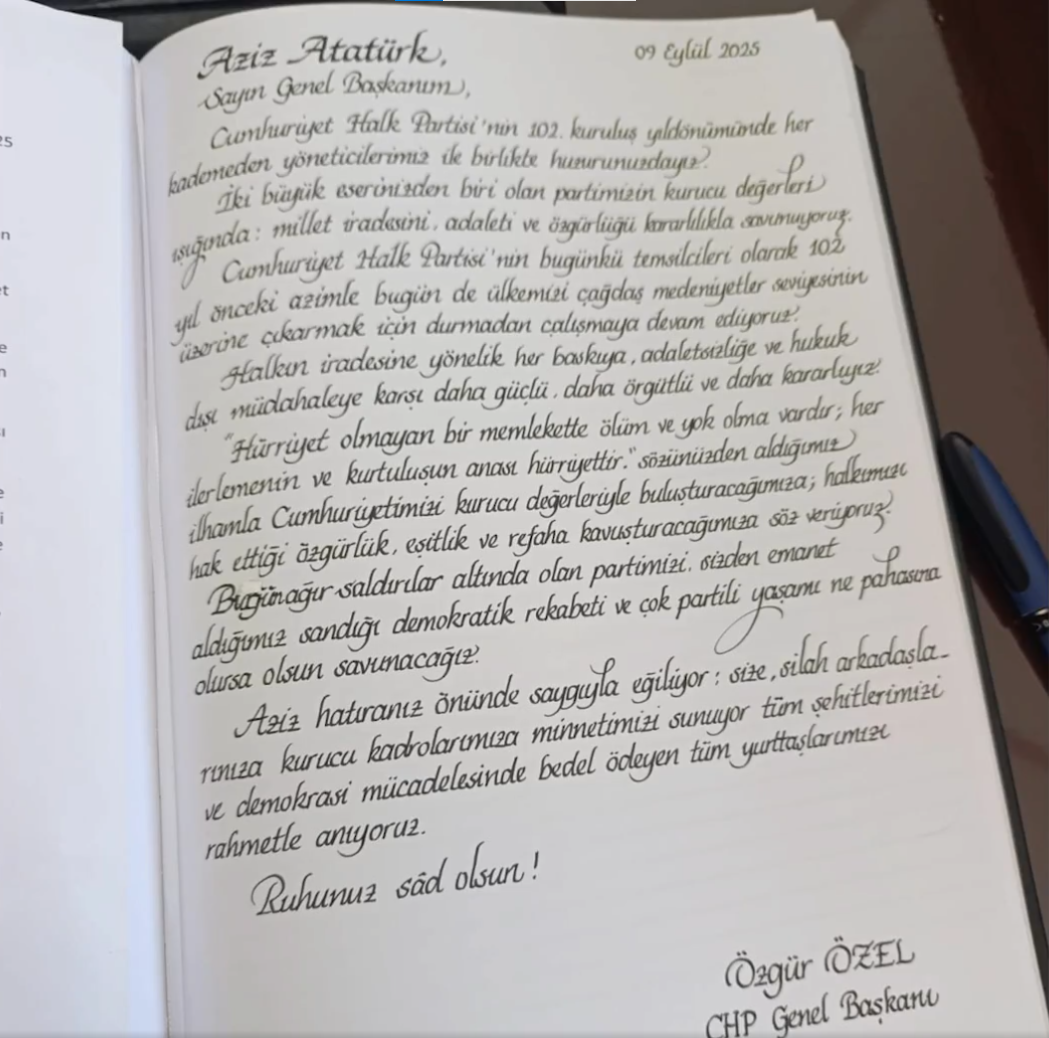 Aziz Atatürk,
09 Eylül 2025
Sayın Genel Başkanım,
Cumhuriyet Halk Partisi'nin 102. kuruluş yıldönümünde her
kademeden yöneticilerimiz ile birlikte huzurunuzdayız.
İki büyük eserinizden biri olan partimizin kurucu değerleri
ışığında; millet iradesini, adaleti ve özgürlüğü kararlılıkla savunuyoruz.
Cumhuriyet Halk Partisi'nin bugünkü temsilcileri olarak 102
yıl önceki azimle bugün de ülkemizi çağdaş medeniyetler seviyesinin
üzerine çıkarmak için durmadan çalışmaya devam ediyoruz.
Halkın iradesine yönelik her baskıya, adaletsizliğe ve hukuk
dışı müdahaleye karşı daha güçlü, daha örgütlü ve daha kararlıyız.
"Hürriyet olmayan bir memlekette ölüm ve yok olma vardır; her
ilerlemenin ve kurtuluşun anası hürriyettir." sözünüzden aldığımız
ilhamla Cumhuriyetimizi kurucu değerleriyle buluşturacağımıza; halkımızı
hak ettiği özgürlük, eşitlik ve refaha kavuşturacağımıza söz veriyoruz.
Bugün ağır saldırılar altında olan partimizi, sizden emanet
aldığımız sandığı demokratik rekabeti ve çok partili yaşamı ne pahasına
olursa olsun savunacağız.
Aziz hatıranız önünde saygıyla eğiliyor; size, silah arkadaşla-
rınıza kurucu kadrolarımıza minnetimizi sunuyor tüm şehitlerimizi
ve demokrasi mücadelesinde bedel ödeyen tüm yurttaşlarımızı
rahmetle anıyoruz.
Ruhunuz şâd olsun!
Özgür ÖZEL
CHP Genel Başkanı